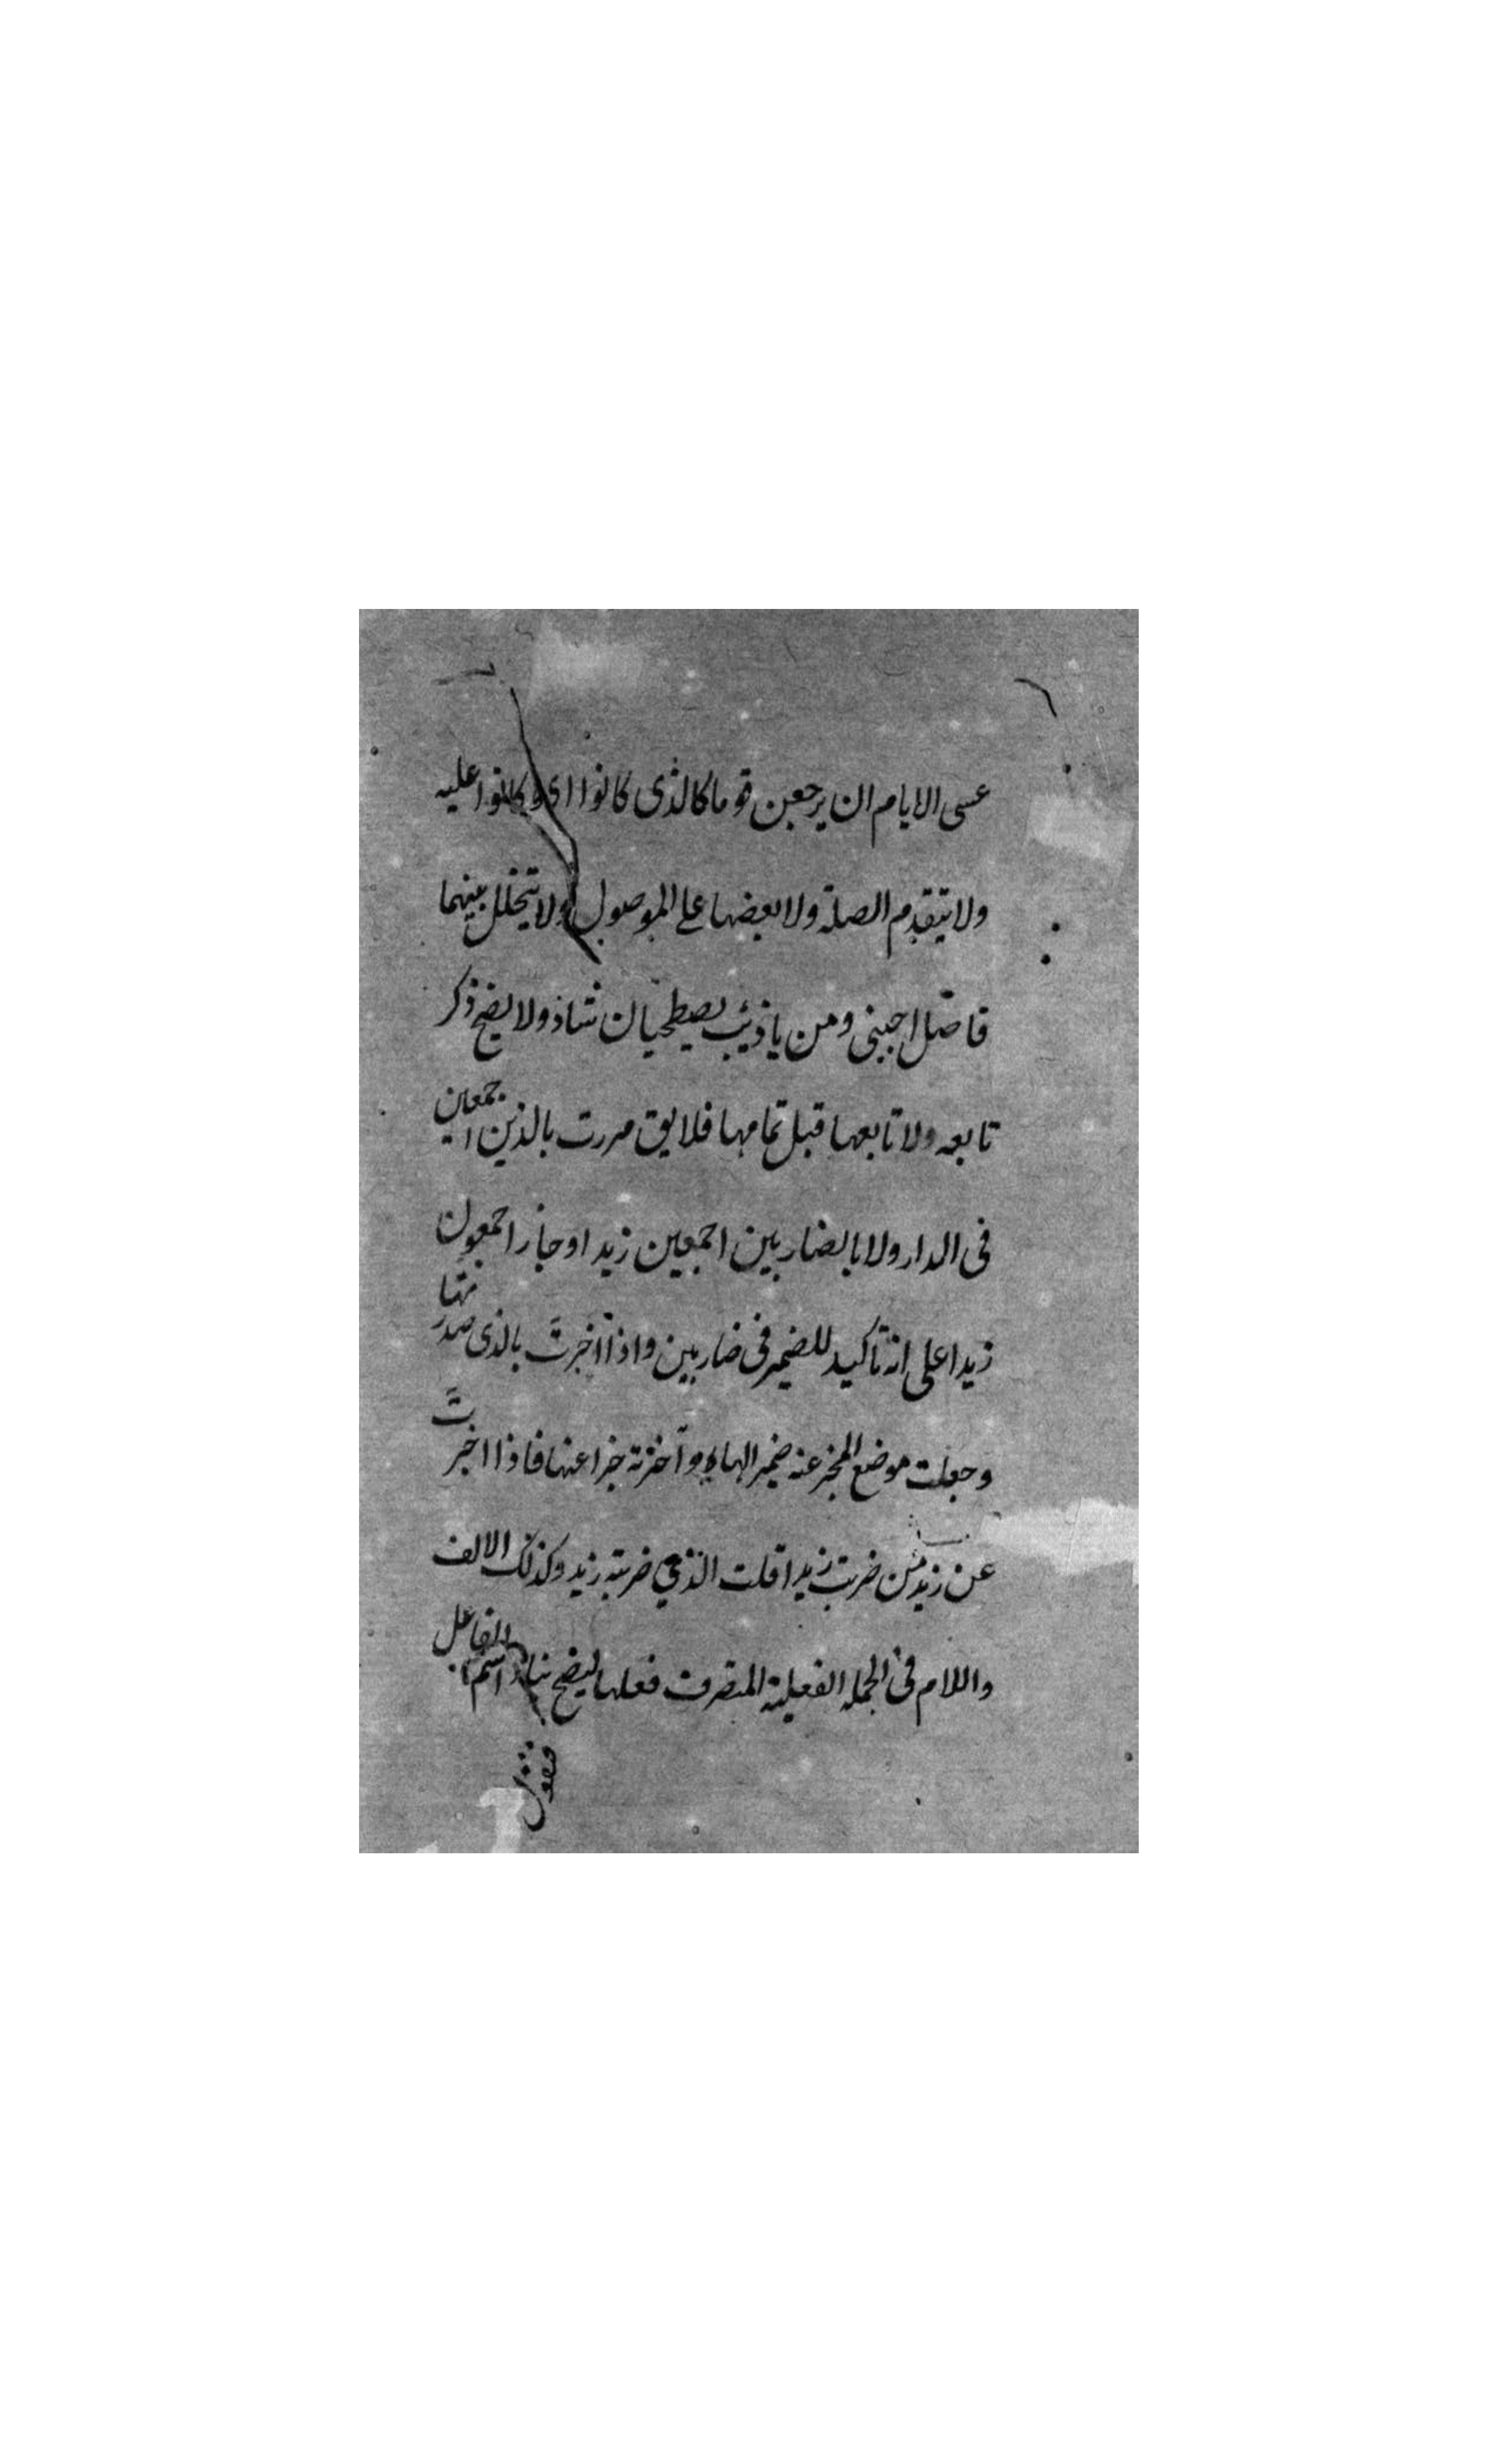 عسى الايام ان يرجعن قوما كالذى كانوا اى كانوا عليه
ولا يتقدم الصلة ولا بعضها على الموصول ولا يتخلل بينهما
فاصل اجنبى ومن يا ذئب يصطحبان شاذ ولا يصح ذكر
تابعه ولا تابعها قبل تمامها فلا يق مررت بالذين اجمعين
فى الدار ولا بالضاربين اجمعين زيدا وجاز اجمعون
زيدا على انه تاكيد للضمير فى ضاربين واذا اخبرتَ بالذى صدرتها
وجعلت موضع المخبر عنه ضمير الهاء وآخرته خبرا عنها فاذا اخبرتَ
عن زيد من ضربت زيدا قلت الذى ضربته زيد وكذلك الالف
واللام فى الجملة الفعلية المتصرف فعلها ليصح بناء اسم الفاعل